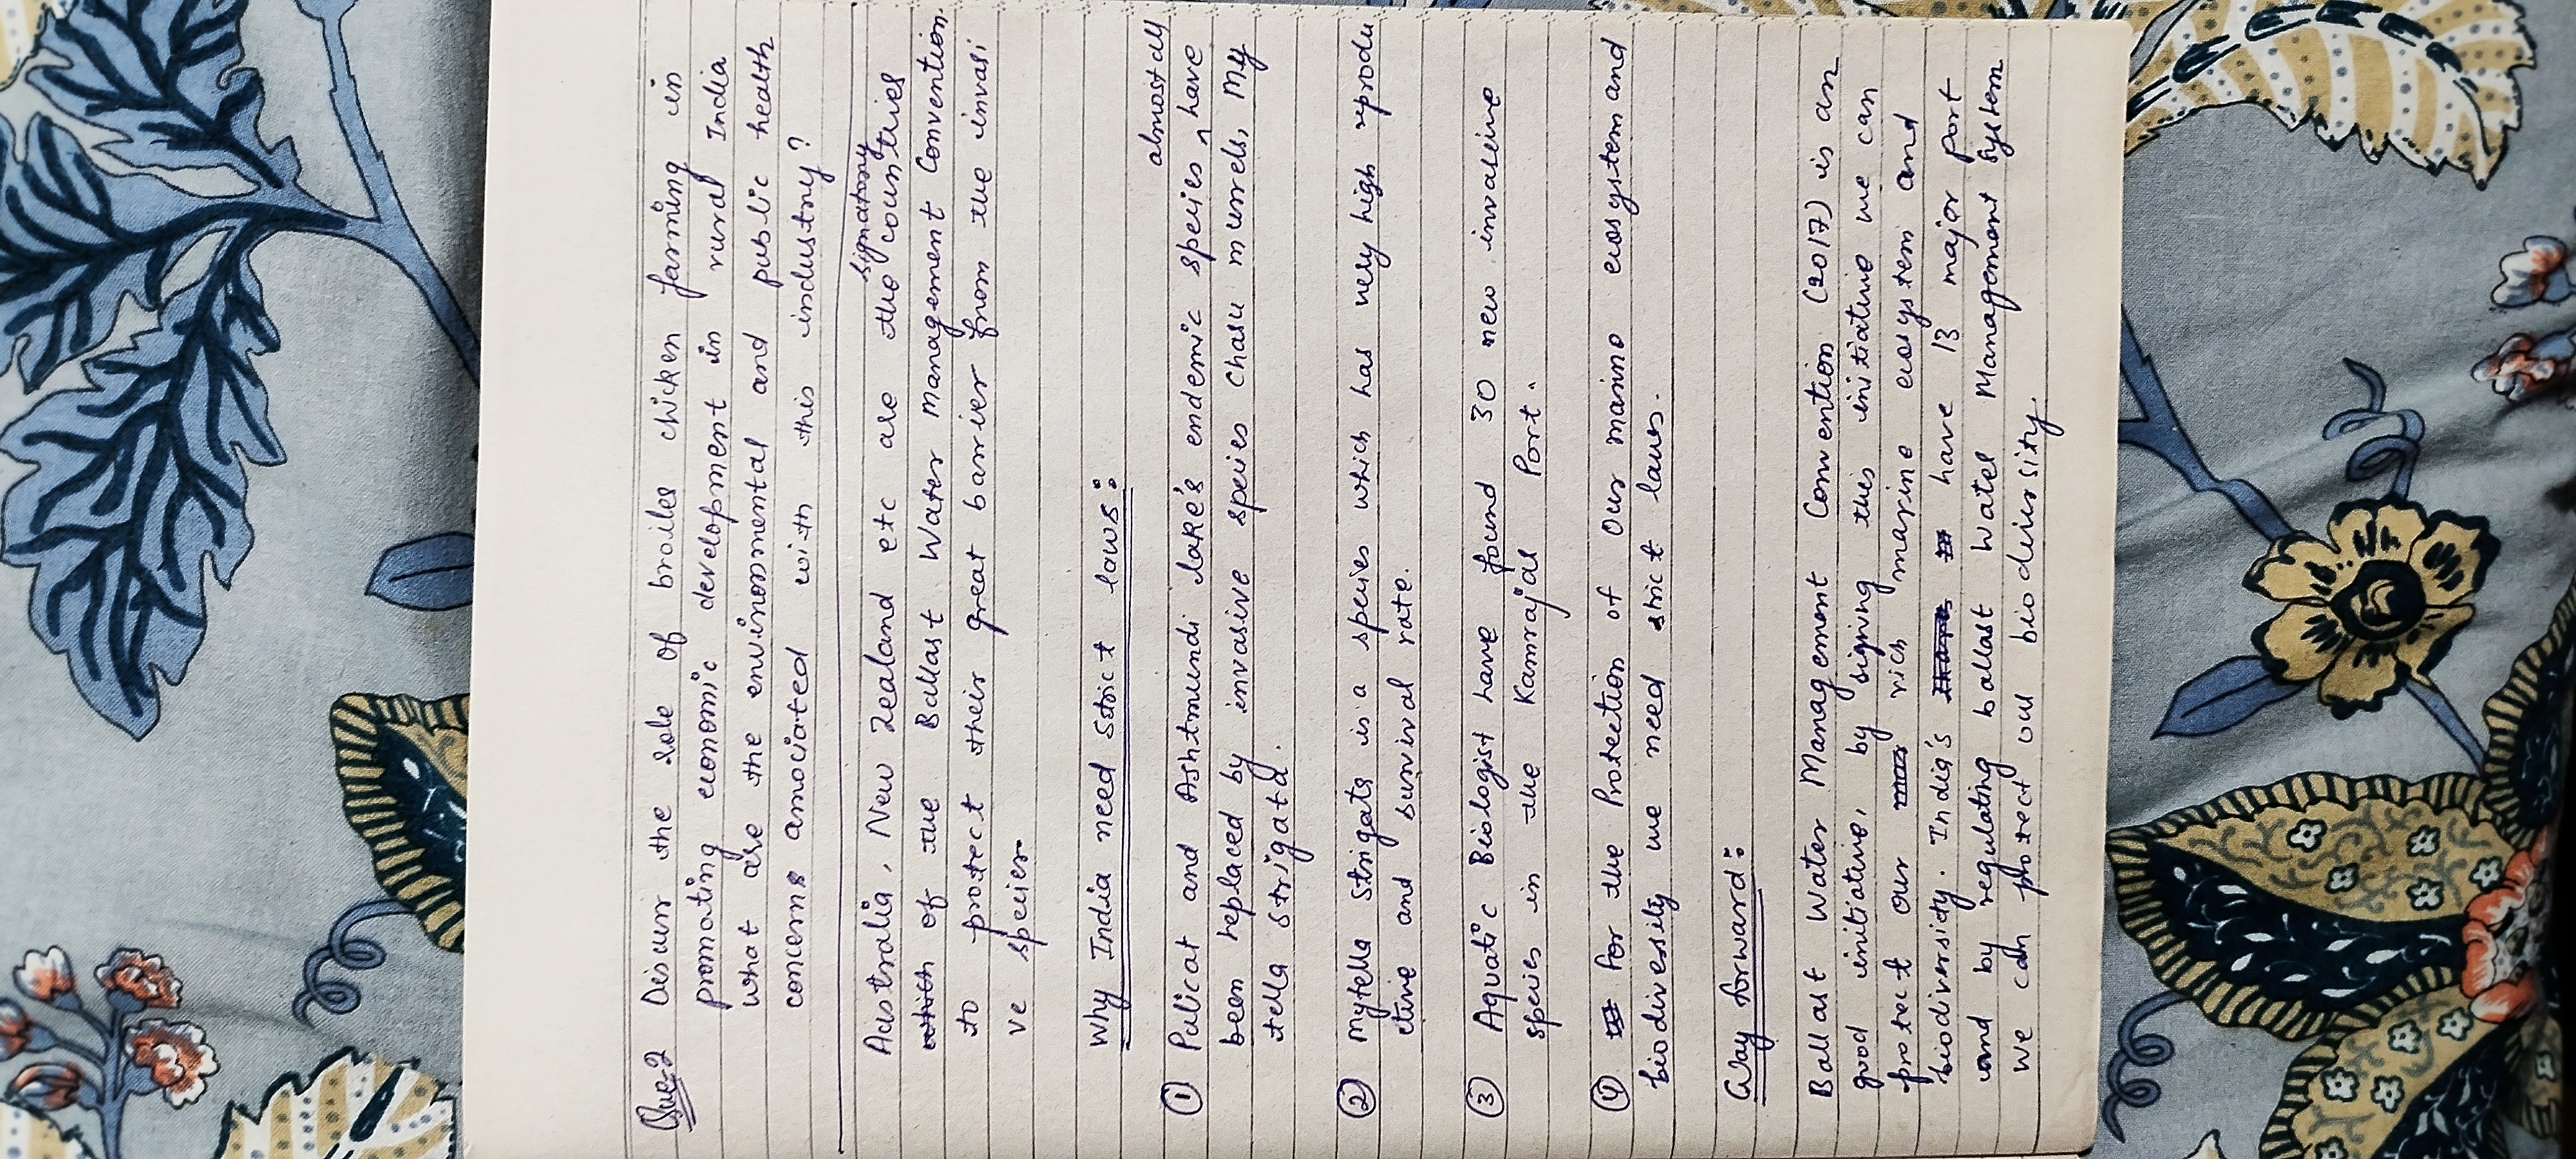 Que-2 Discuss the role of broiler chicken farming in
promoting economic development in rural India
what are the environmental and public health
concerns associated with this industry?
signatory
Australia, New Zealand etc are the countries
of the Ballast Water Management Convention
to protect their great barrier from the invasi
ve species
Why India need strict laws:
almost all
① Pulicat and Ashtmundi lake's endemic species ^ have
been replaced by invasive species Chasu murrels, My
tella strigata.
② Mytella Strigats is a species which has very high reprodu
ctive and survival rate.
③ Aquatic Biologist have found 30 new invasive
species in the Kamrajal Port.
④ For the Protection of Our marine ecosystem and
biodiversity we need strict laws.
Way forward:
Ballast Water Management Convention (2017) is an
good initiative, by signing this initiative we can
protect our rich marine ecosystem and
biodiversity. India's have 13 major port
and by regulating ballast Water Management System
We can protect our biodiversity.